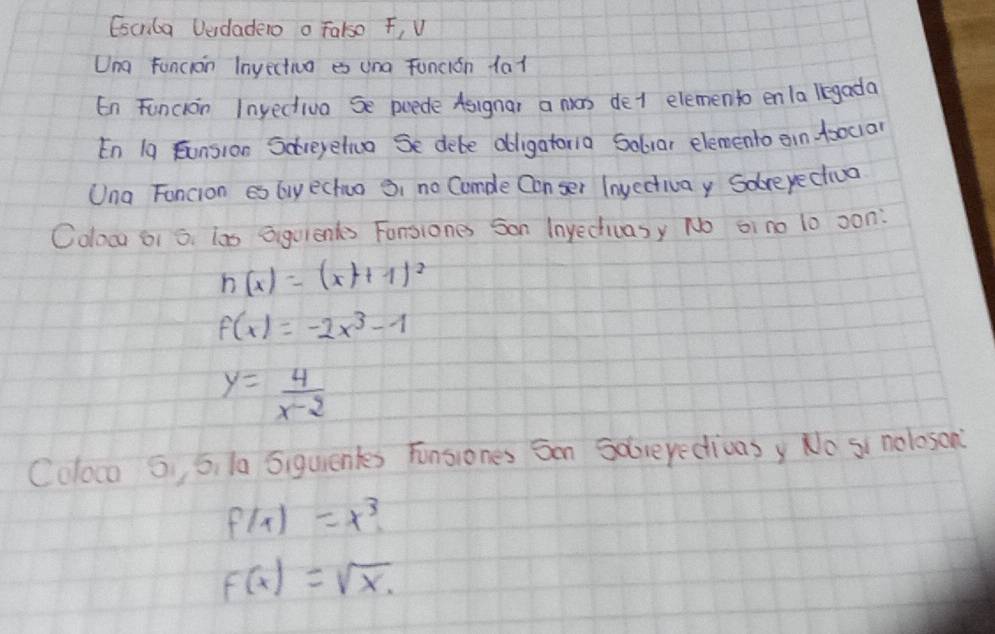 Escriba Verdadero o Falso F, V
Una Función Inyectiva es una Función 1a1
En Función Inyectiva Se puede Asignar a mas de 1 elemento en la llegada
En la Funsion Sobreyetiva Se debe obligatoria Sobrar elemento sin Asociar
Una Funcion es biyectiva Si no Cumple Con ser Inyectiva y Sobreyectiva
Coloca Si Si las Siguientes Funsiones Son Inyectivas y No si no lo son:
h(x) = (x)+1)²
f(x) = -2x³-1
y = 4/(x-2)
Coloca Si, Si la Siguientes Funsiones Son Sobreyectivas y No si noloson:
f(x) = x³.
F(x) = √x.